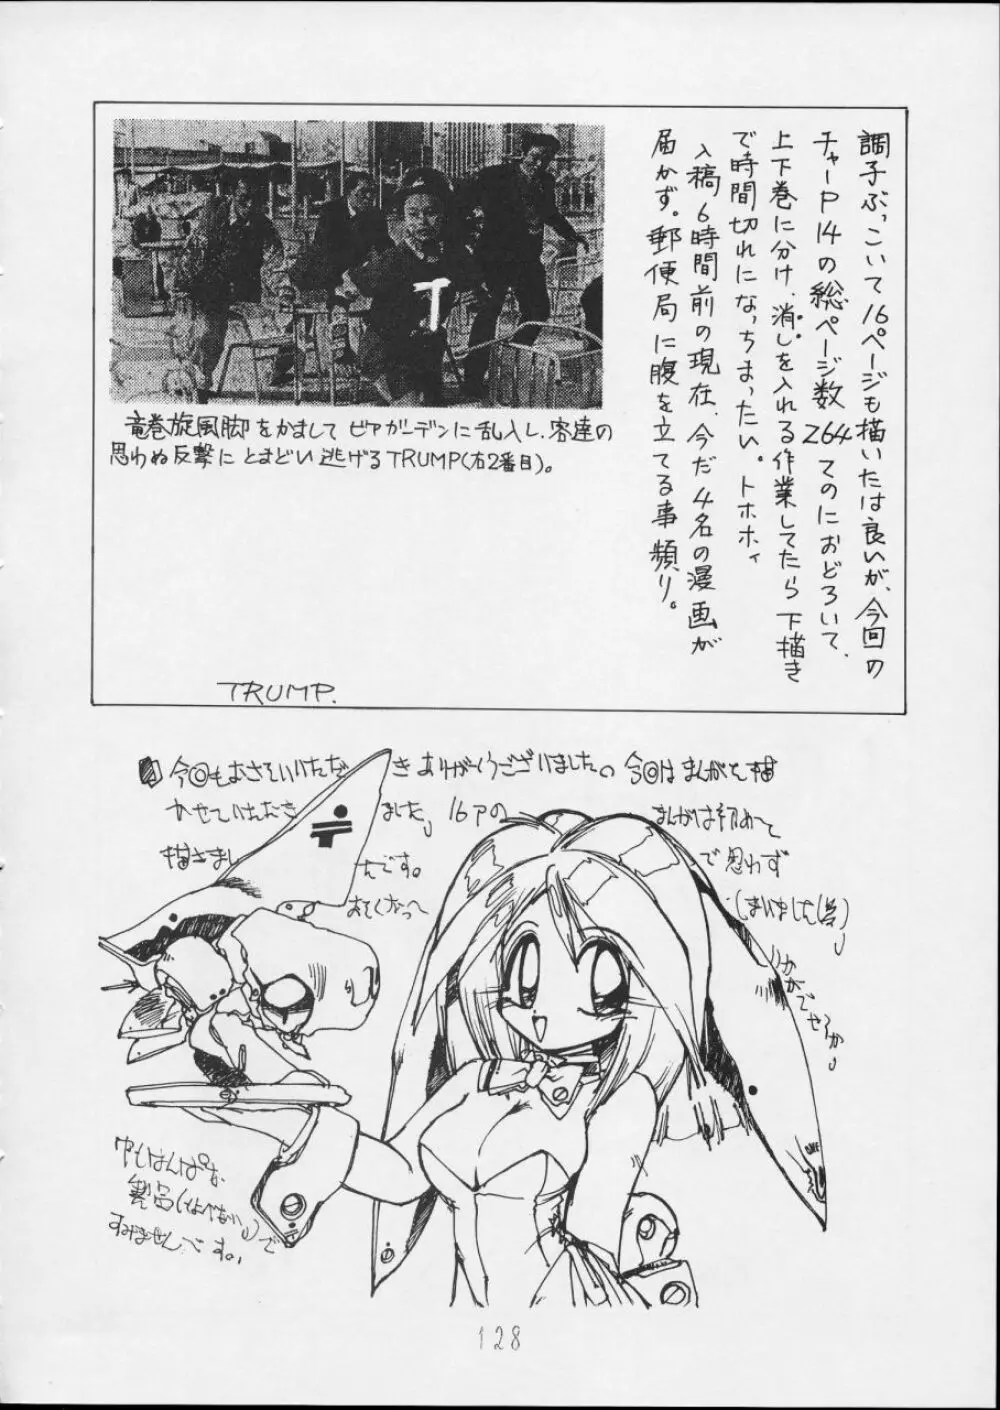 調子ぶっこいて16ページも描いたは良いが、今回の
チャーP14の総ページ数264てのにおどろいて、
上下巻に分け、消しを入れる作業してたら下描き
で時間切れになっちまったい。トホホィ
入稿6時間前の現在、今だ4名の漫画が
届かず。郵便局に腹を立てる事頻り。
T
竜巻旋風脚をかましてビアガーデンに乱入し、客達の
思わぬ反撃にとまどい逃げるTRUMP(右2番目)。
TRUMP.
今回もおさそいいただきありがとうございました。今回はまんがを描
かせていただきました。16Pの まんがは初めて
描きました で思わず
です。
しまいました(笑)
いかがでせうか。
製品 で
すみませんです。
128